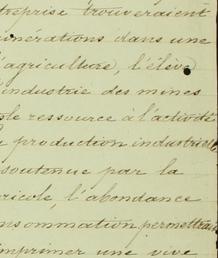 treprise trouveraient
énérations dans une
l'agriculture, l'élève
'industrie des mines
ple ressource à l'activité
e production industrielle
soutenue par la
ricole, l'abondance
nsommation permettrait
imprimer une vive